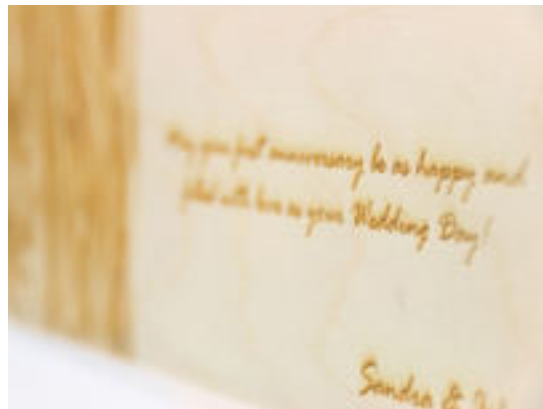 May your first anniversary be as happy and
filled with love as your Wedding Day!
Sandra &